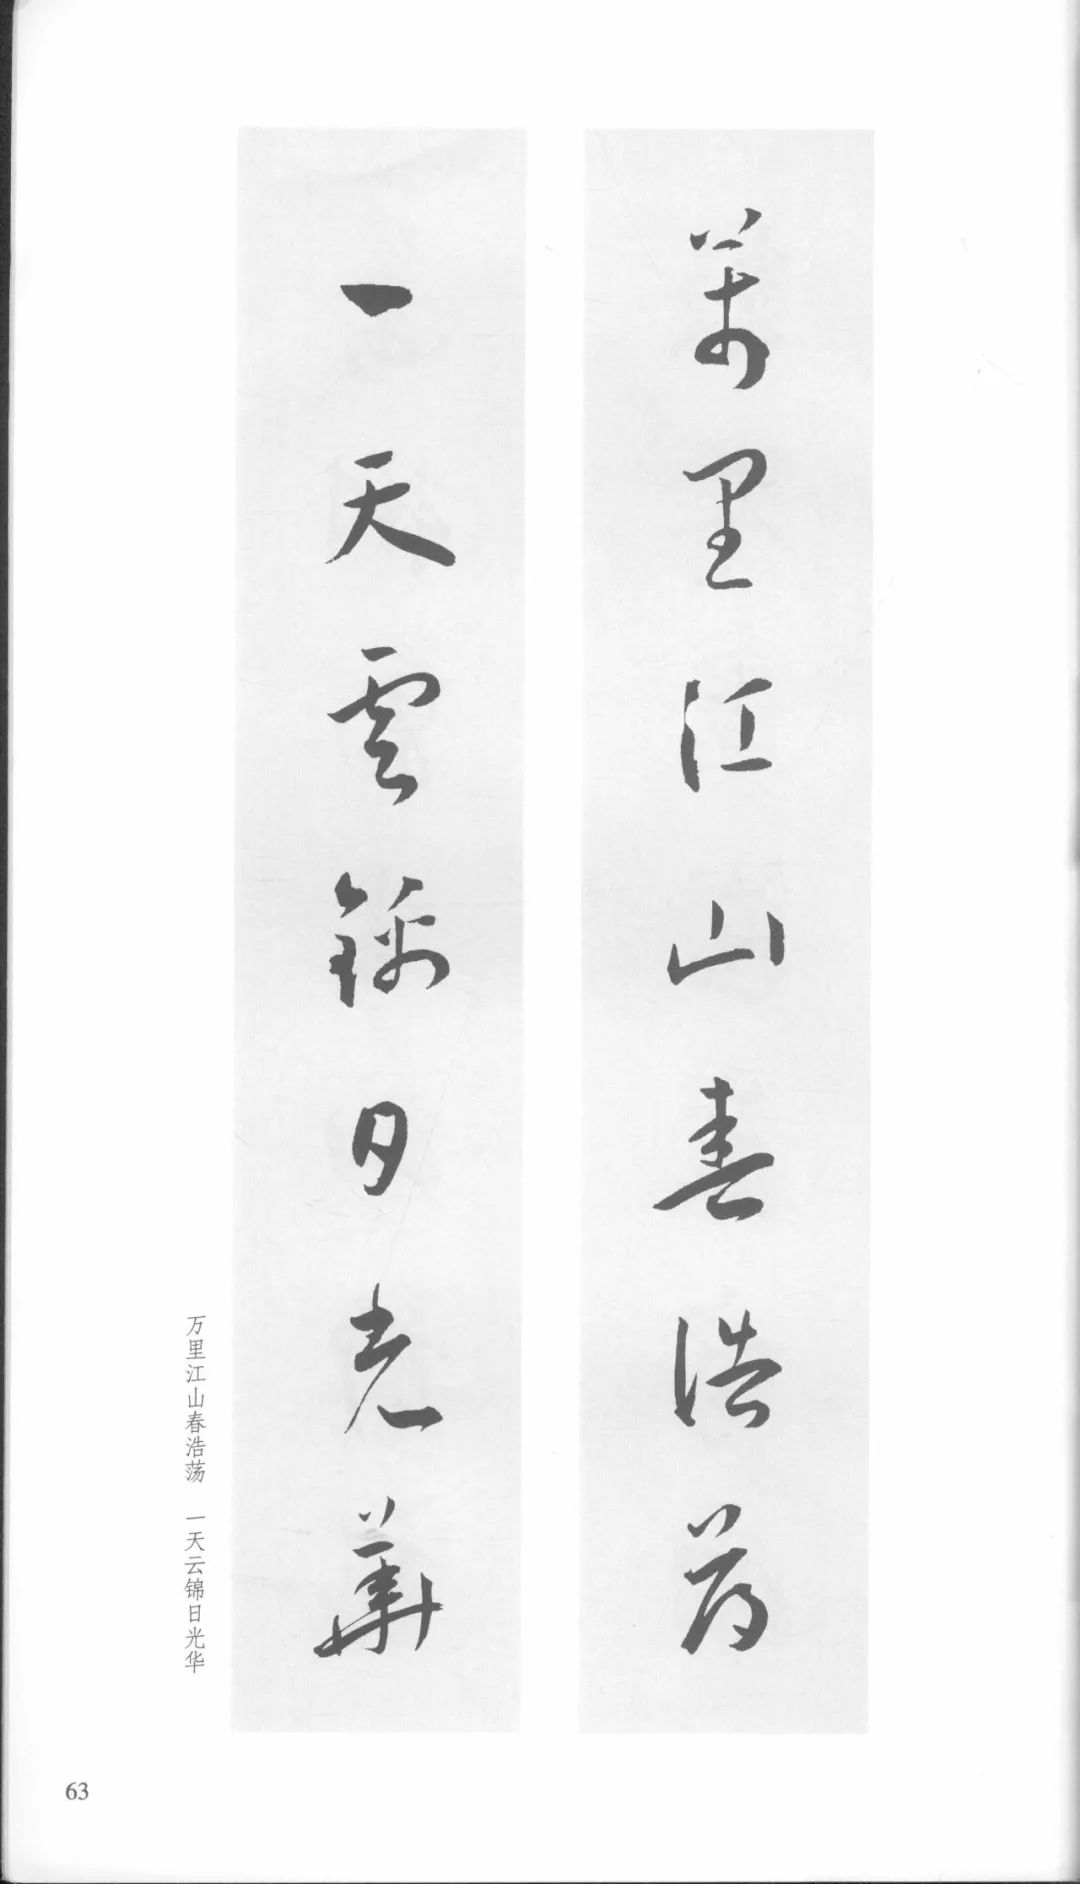 萬里江山春浩荡
一天雲錦日光華
万里江山春浩荡 一天云锦日光华
63